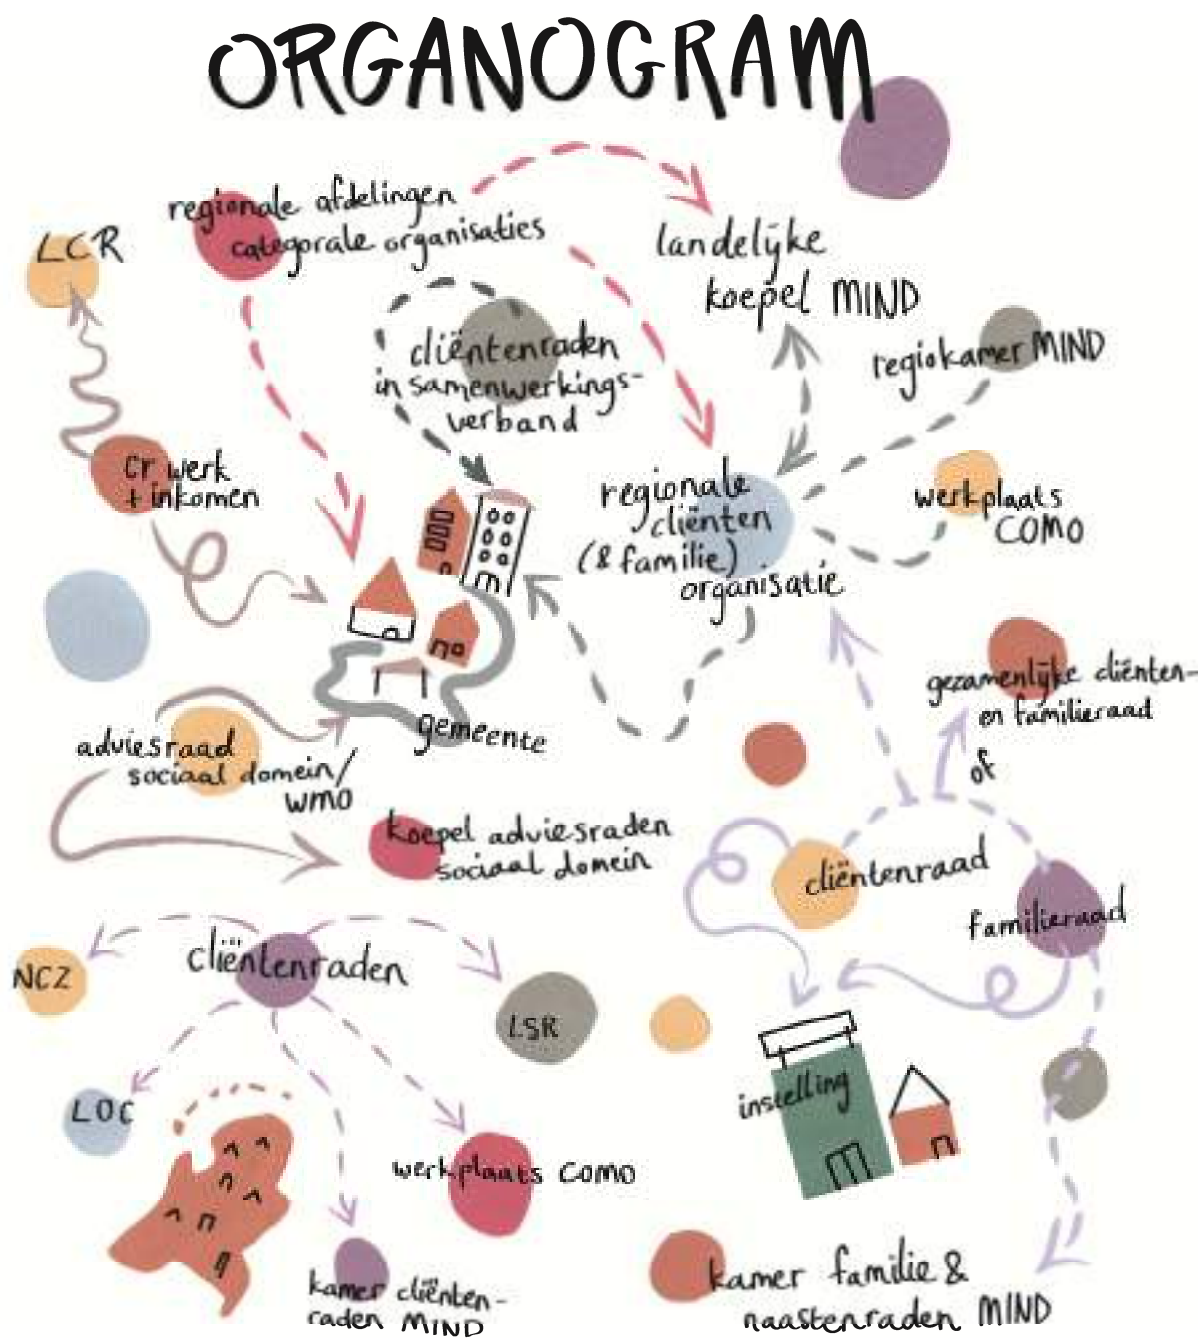 ORGANOGRAM
regionale afdelingen
categorale organisaties
LCR
landelijke
koepel MIND
cliëntenraden
in samenwerkings-
verband
regiokamer MIND
cr werk
+ inkomen
regionale
cliënten
(& familie)
organisatie
werkplaats
COMO
gezamenlijke cliënten-
en familieraad
of
gemeente
adviesraad
sociaal domein/
WMO
koepel adviesraden
sociaal domein
cliëntenraad
familieraad
cliëntenraden
NCZ
LSR
LOC
instelling
werkplaats COMO
kamer cliënten-
raden MIND
kamer familie &
naastenraden MIND